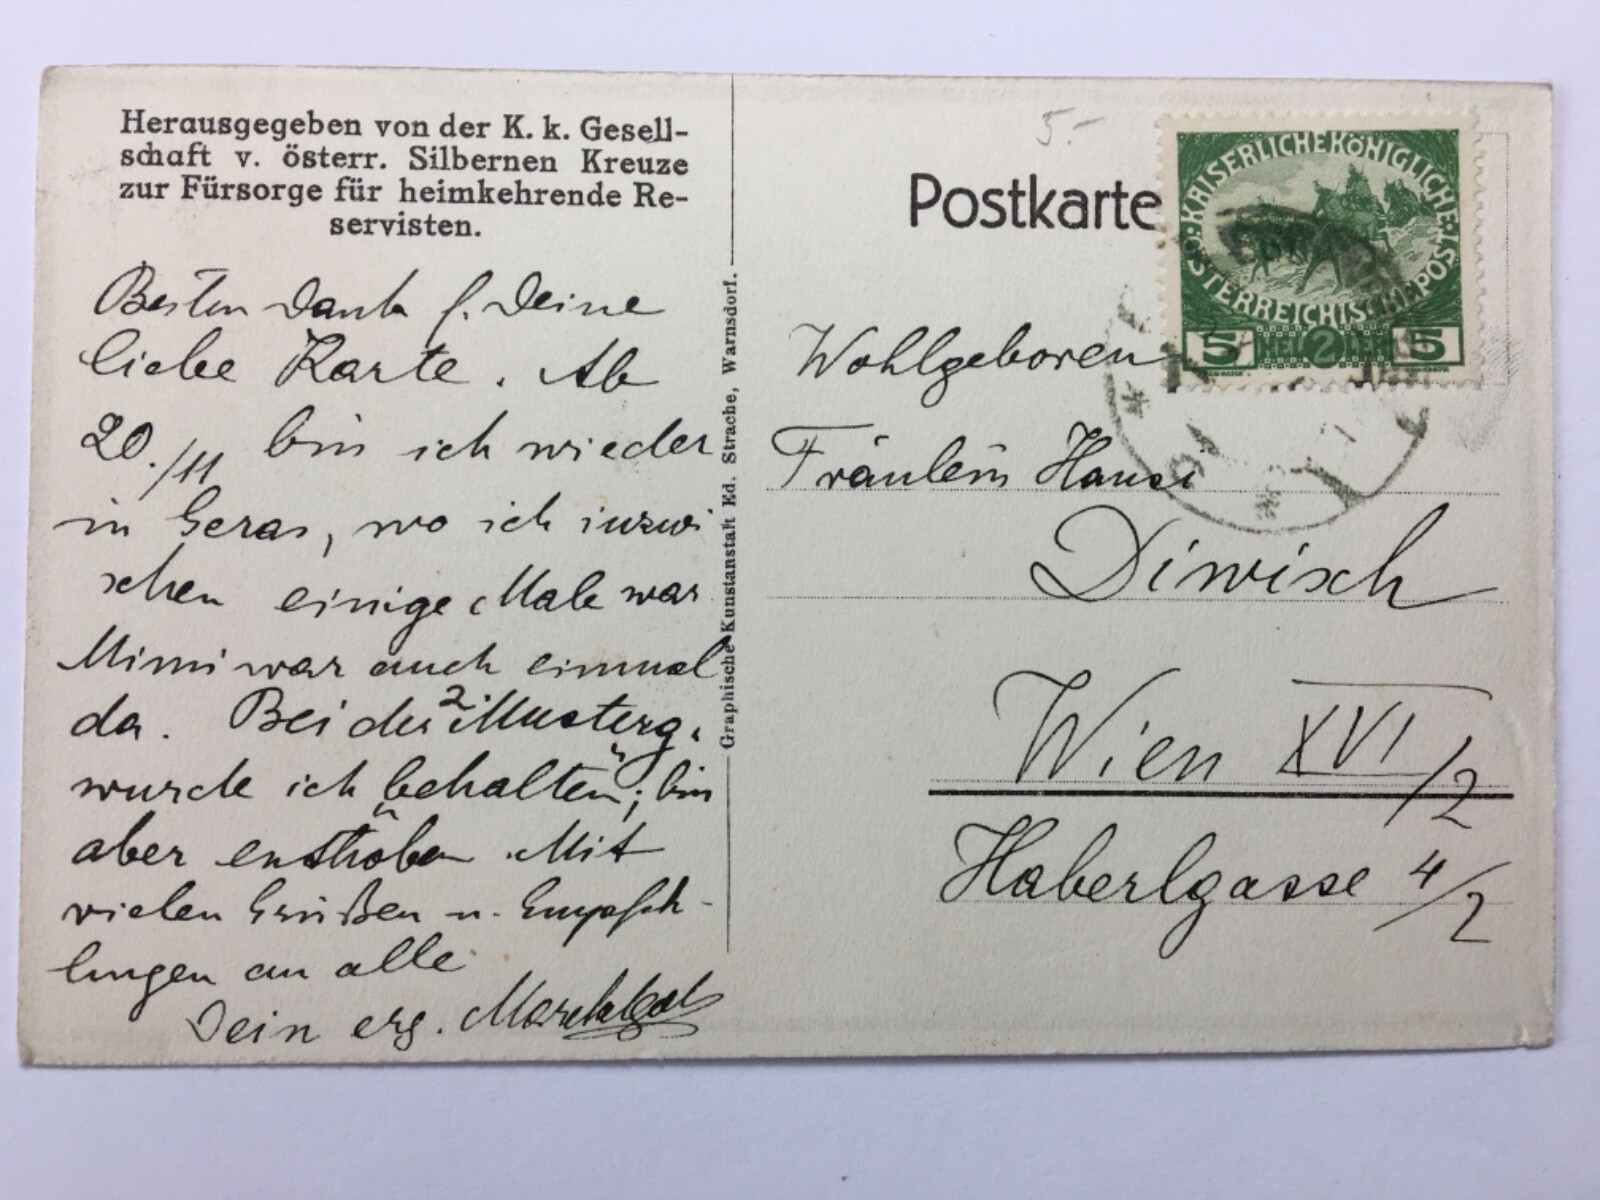 Herausgegeben von der K. k. Gesell-
schaft v. österr. Silbernen Kreuze
zur Fürsorge für heimkehrende Re-
servisten.
Besten Dank f. Deine
liebe Karte. Ab
20./11 bin ich wieder
in Geras, wo ich inzwi
schen einige Male war
Mimi war auch einmal
da. Bei der 2. Musterg.
wurde ich "behalten"; bin
aber enthoben. Mit
vielen Grüßen u. Empfeh-
lungen an alle
Dein erg.
Graphische Kunstanstalt Ed. Strache, Warnsdorf.
5.-
Postkarte
KAISERLICHE KÖNIGLICHE
ÖSTERREICHISCHE POST
5 2 5
Wohlgeboren
Fräulein Hansi
Diwisch
Wien XVI/2
Haberlgasse 4/2